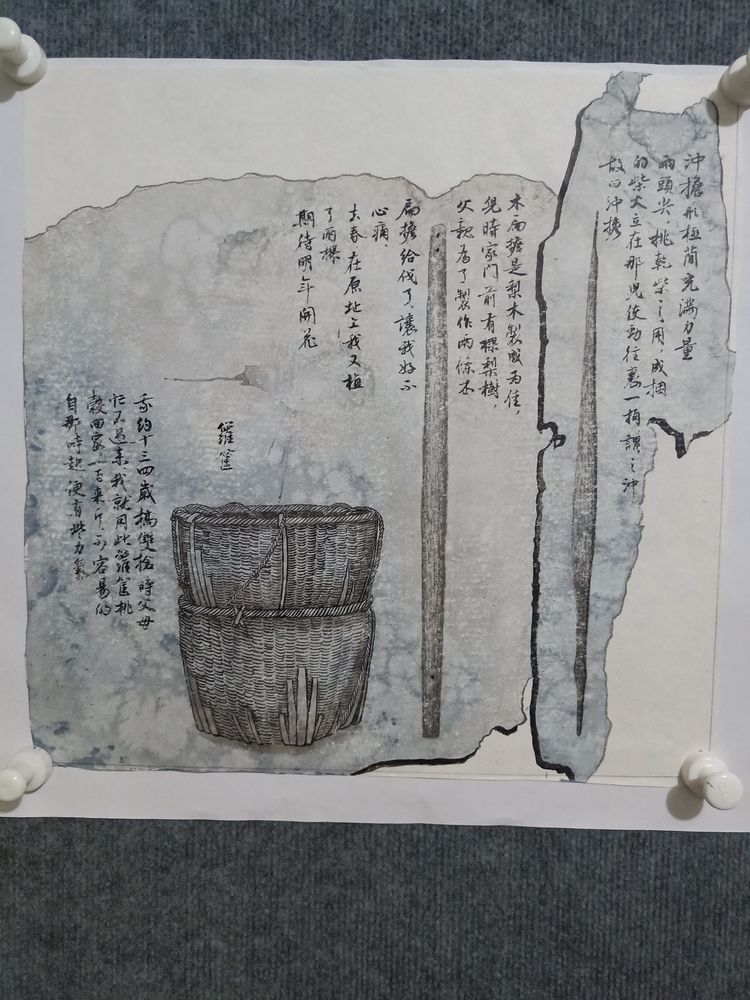 沖擔形極簡充滿力量
兩頭尖，挑乾柴之用，成捆
的柴火立在那兒使勁往裏一捅謂之沖
故曰沖擔
木扁擔是梨木製做为佳，
兒時家門前有棵梨樹，
父親为了製作两條木
扁擔給伐了、讓我好不
心痛、
去春在原址上我又植
了两棵
期待明年開花
籮筐
我約十三四歲搞雙搶時父母
忙不過來我就用此籮筐挑
穀回家一百来斤不容易的
自那時起便有些力氣